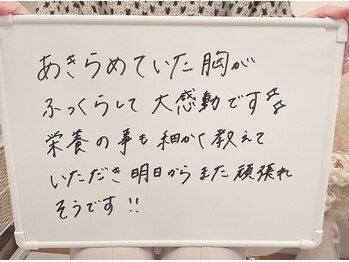 あきらめていた胸が
ふっくらして大感動です💦
栄養の事も細かく教えて
いただき明日からまた頑張れ
そうです!!